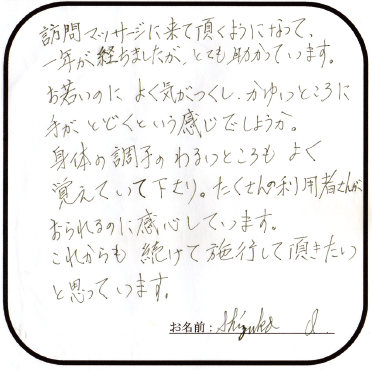 訪問マッサージに来て頂くようになって、
一年が経ちましたが、とても助かっています。
お若いのに よく気がつくし、かゆいところに
手が とどくという感じでしょうか。
身体の調子の わるいところも よく
覚えていて下さり。たくさんの利用者さんが
おられるのに感心しています。
これからも 続けて施行して頂きたい
と思っています。
お名前：Shizuka O.